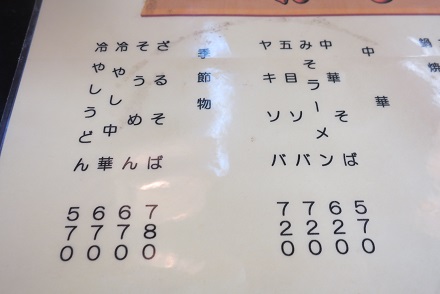 鍋焼
中華
中華そば 570
みそラーメン 620
五目ソバ 720
ヤキソバ 720
季節物
ざるそば 780
そうめん 670
冷やし中華 670
冷やしうどん 570